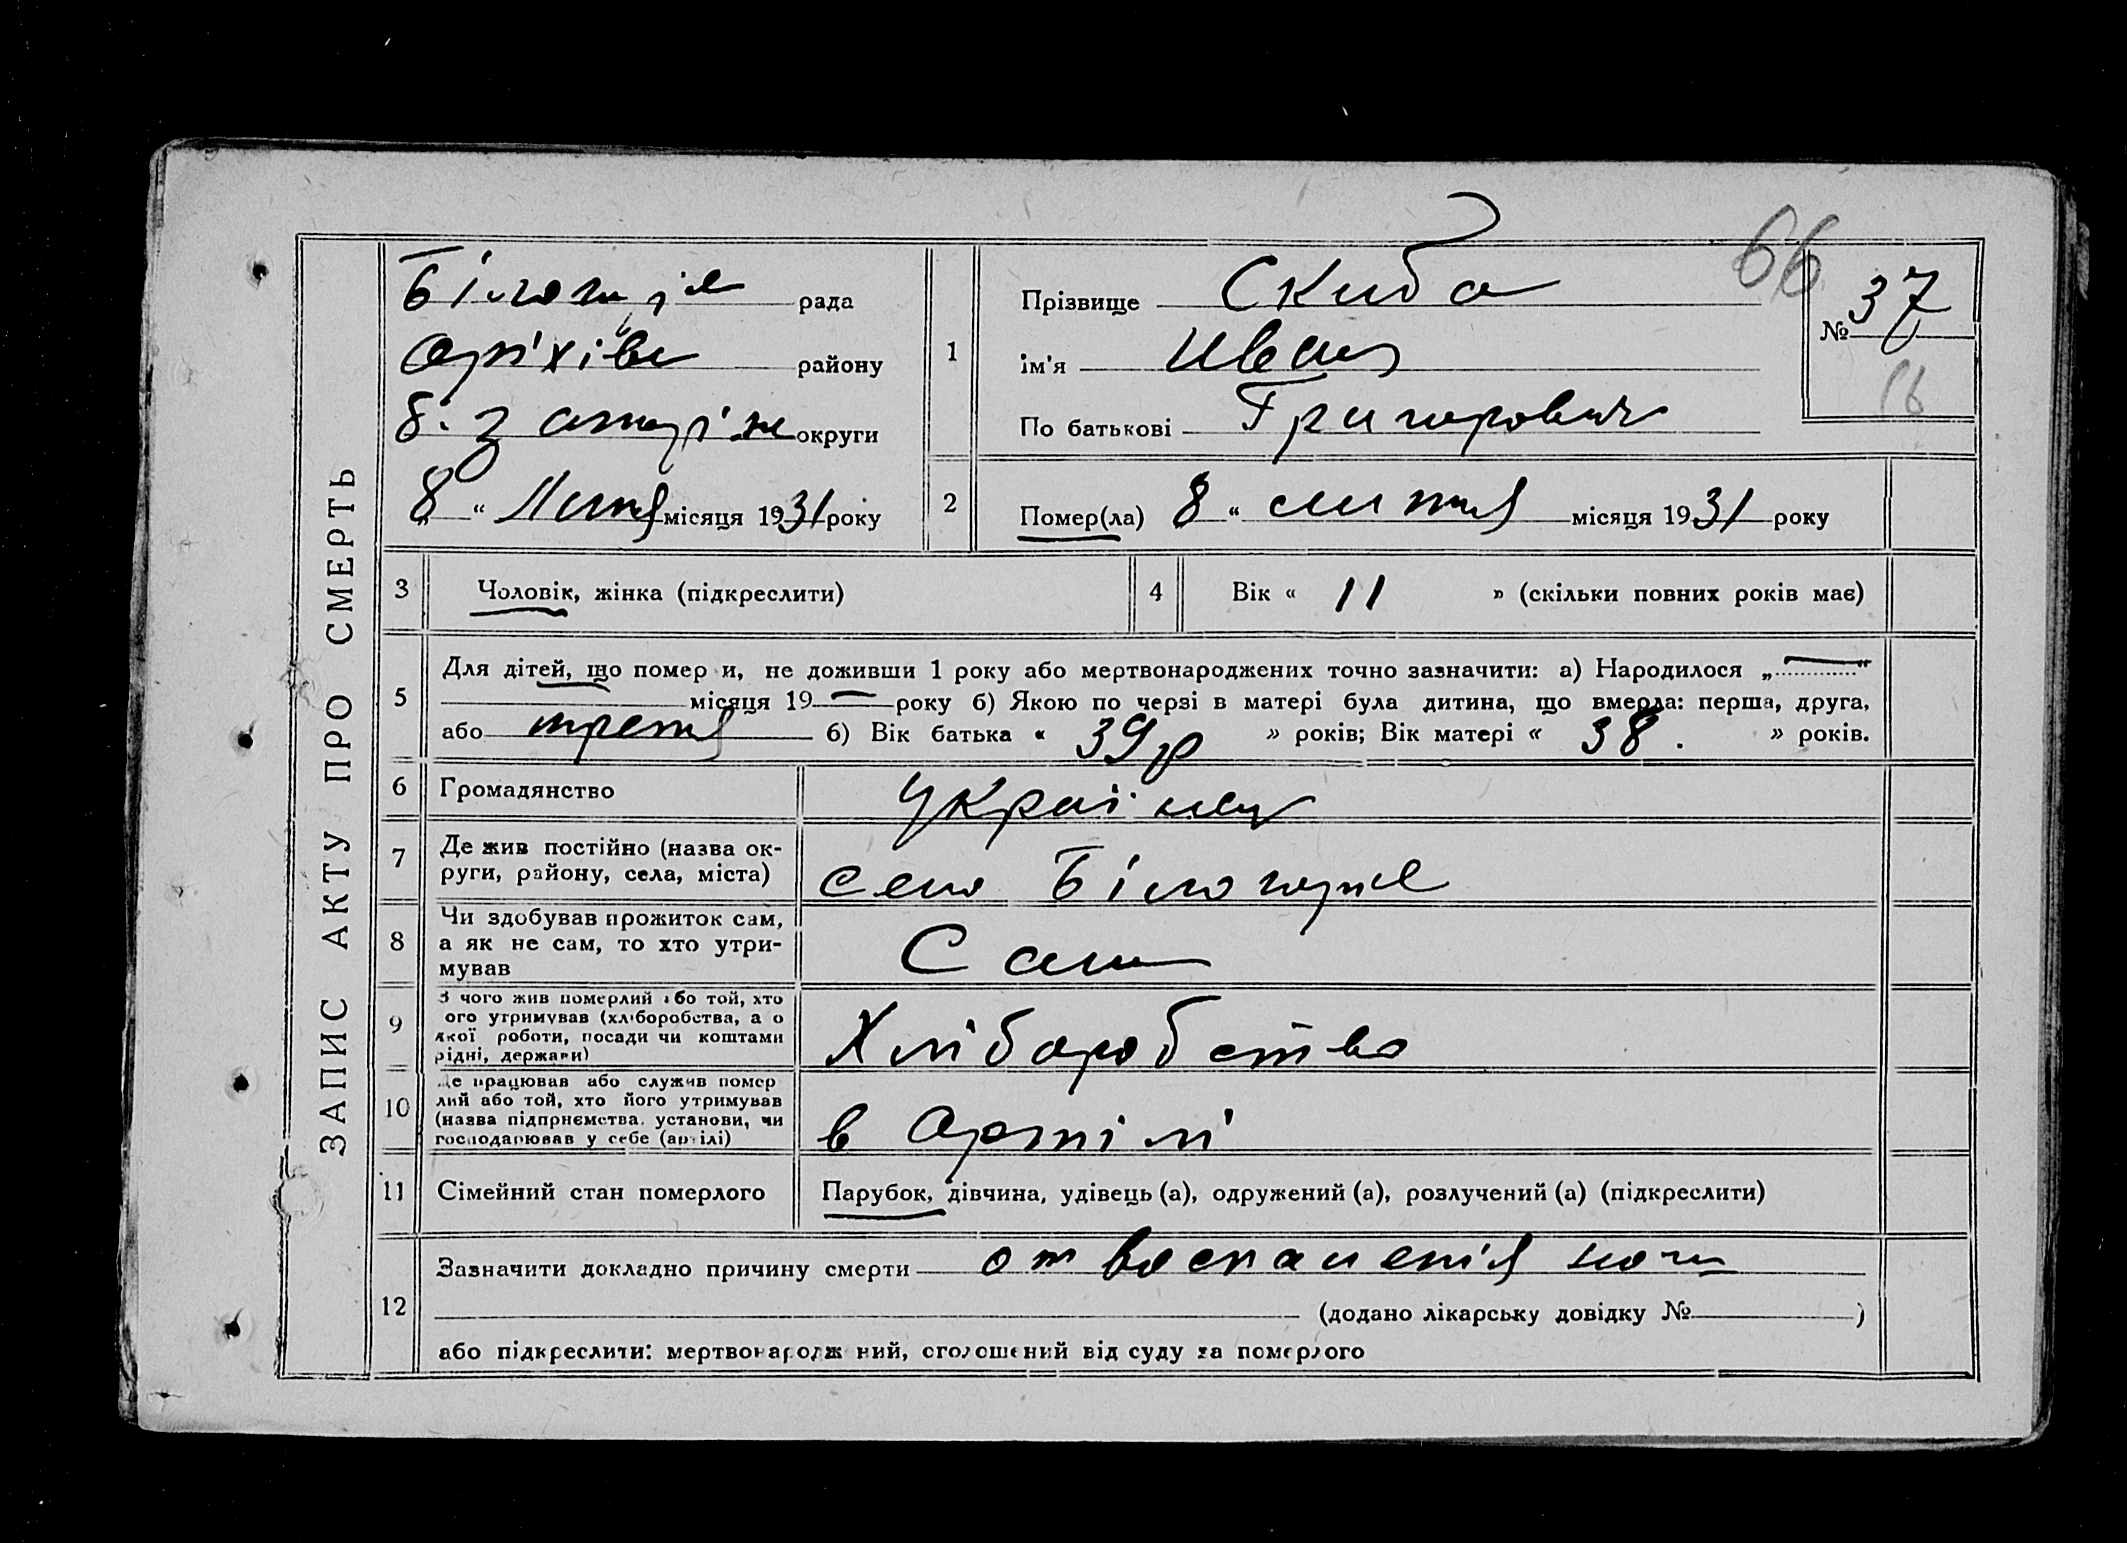 ЗАПИС АКТУ ПРО СМЕРТЬ
Білогір'є рада
Оріхівс району
б. Запоріж округи
„8“ Липня місяця 1931 року
1
Прізвище Скиба
ім'я Иван
По батькові Григорович
66
№ 37
16
2
Помер(ла) 8 “ липня місяця 1931 року
3 Чоловік, жінка (підкреслити)
4 Вік « 11 » (скільки повних років має)
5
Для дітей, що помер и, не доживши 1 року або мертвонароджених точно зазначити: а) Народилося „ — “
місяця 19 — року б) Якою по черзі в матері була дитина, що вмерла: перша, друга,
або третя б) Вік батька « 39 р » років; Вік матері « 38. » років.
6 Громадянство Украінец
7
Де жив постійно (назва ок-
руги, району, села, міста) село Білогірье
8
Чи здобував прожиток сам,
а як не сам, то хто утри-
мував Сам
9
З чого жив померлий або той, хто
ого утримував (хліборобства, а о
якої роботи, посади чи коштами
рідні, держави) Хліборобство
10
Де працював або служив помер
лий або той, хто його утримував
(назва підприємства, установи, чи
господарював у себе (артілі) в Артілі
11 Сімейний стан померлого Парубок, дівчина, удівець (а), одружений (а), розлучений (а) (підкреслити)
12
Зазначити докладно причину смерти от воспаленія
(додано лікарську довідку № )
або підкреслити: мертвонародж ний, оголошений від суду за померлого